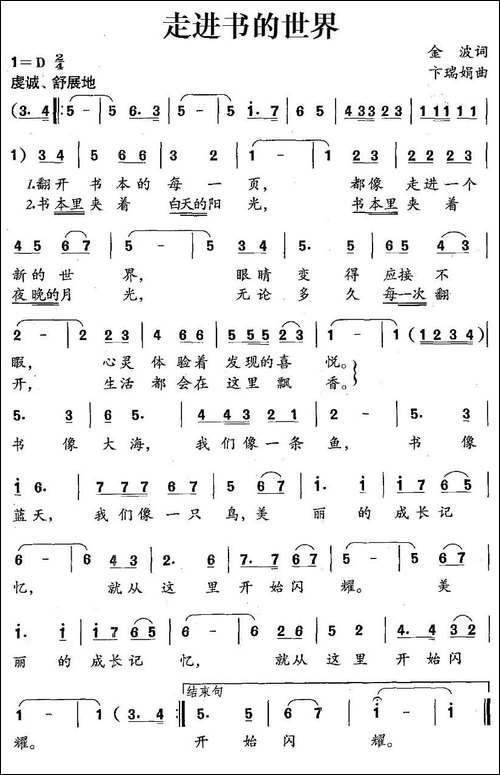 走进书的世界
1=D 2/4
金 波词
虔诚、舒展地
卞瑞娟曲
(3. 4 ‖: 5 - | 5 6. 3 | 5 - | 5 i. 7 | 6 5 | 4 3 3 2 3 | 1 1 1 1 1 |
1) 3 4 | 5 6 6 | 3 2 | 1 - | 1 2 3 | 2 2 2 3 |
1.翻开 书本的 每一 页, 都像 走进一个
2.书本里夹着 白天的阳 光, 书本里夹着
4 5 6 7 | 5 - | 5 3 4 | 5. 5 | 6 5 4 3 |
新的世 界, 眼睛 变得 应接不
夜晚的月 光, 无论 多久 每一次翻
2 - | 2 2 3 | 4 6 6 | 5 5 5 2 3 | 1 - | 1 (1 2 3 4) |
暇, 心灵 体验着 发现的喜 悦。
开, 生活 都会在 这里飘 香。
5. 3 | 6 5. | 4 4 3 2 1 | 2 - | 5. 3 |
书 像 大海, 我们像一条 鱼, 书 像
i 6. | 7 7 7 6 7 | 5 6 7 | i. i | i 7 6 7 |
蓝天, 我们像一只 鸟,美 丽 的 成长记
6 - | 6 4 3 | 2. 6 | 7. 7 6 7 | 5 - | 5 6 7 |
忆, 就从 这 里 开始闪 耀。 美
i. i | i 7 6 5 | 6 - | 6 6 6 | 5 2 | 4. 4 3 2 |
丽 的 成长记 忆, 就从 这里 开始闪
结束句
1 - | 1 (3. 4 :‖ 5. 5 | 6 7 | i - | i - ‖
耀。 开 始 闪 耀。